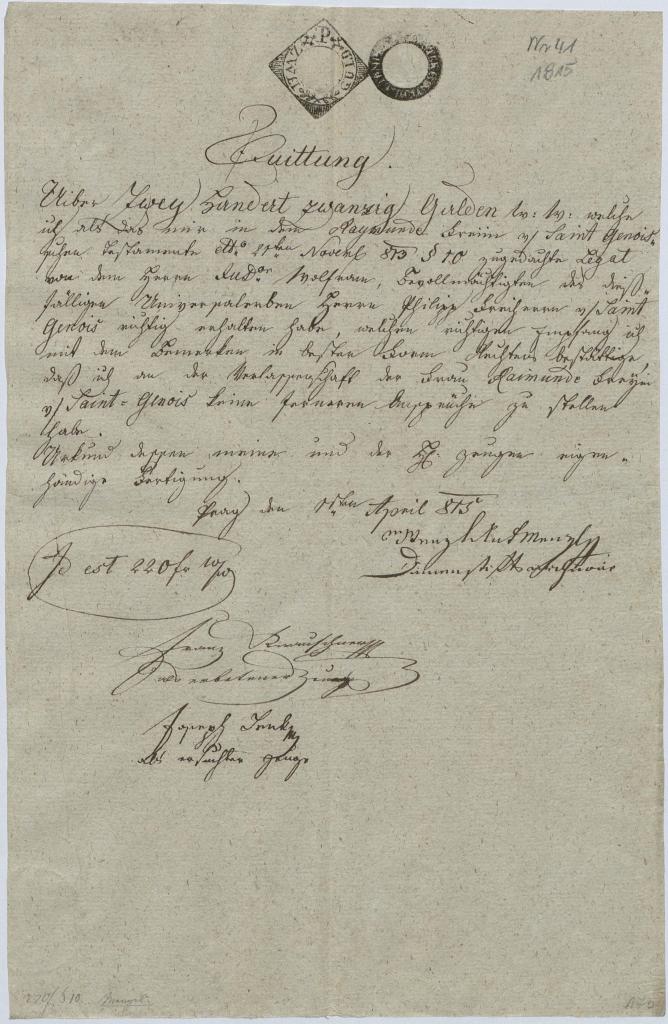 Nr 41
1815
Quittung.
Uiber Zwey Hundert zwanzig Gulden W: W: welche
ich als das mir in dem Raymunde Freiin v/ Saint Genois-
schen Testamente dto 11ten 813 § 10 zugedachte Legat
von dem Herrn Wolfram, Bevollmächtigten des dieß-
fälligen Universalerben Herrn Philipp Freiherrn v/ Saint
Genois richtig erhalten habe, welchen richtigen Empfang ich
mit dem Bemerken in bester Form Rechtens bestättige
daß ich an der Verlassenschaft der Frau Raimunde Freyin
v/ Saint-Genois keine ferneren Ansprüche zu stellen
habe.
Urkund dessen meine und der H: Zeugen eigen-
händige Fertigung.
Prag den April 815
Id est 220 fr W/W
Franz
als erbetener Zeug
Joseph
als ersuchter Zeuge
220/ § 10